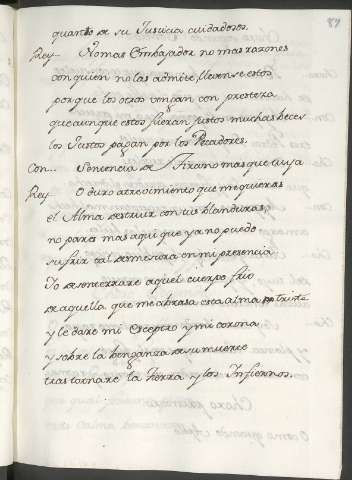 87
quanto de su Justicia cuidadosos.
Rey No mas Embajador no mas razones
con quien no las admite, llevense estos
porque los otros vengan con presteza
que aunque estos fueran justos muchas beces
los Justos pagan por los Pecadores.
Con... Sentencia de Tirano mas que tuya
Rey O duro atrevimiento que me quieras
el Alma destruir con tus blanduras,
no pares mas aqui que ya no puedo
sufrir tal desmesura en mi presencia
Yo desenterrare aquel cuerpo frio
de aquella que me abrasa esta alma triste
y le dare mi Sceptro y mi corona
y sobre la benganza de su muerte
trastornare la tierra y los Infiernos.